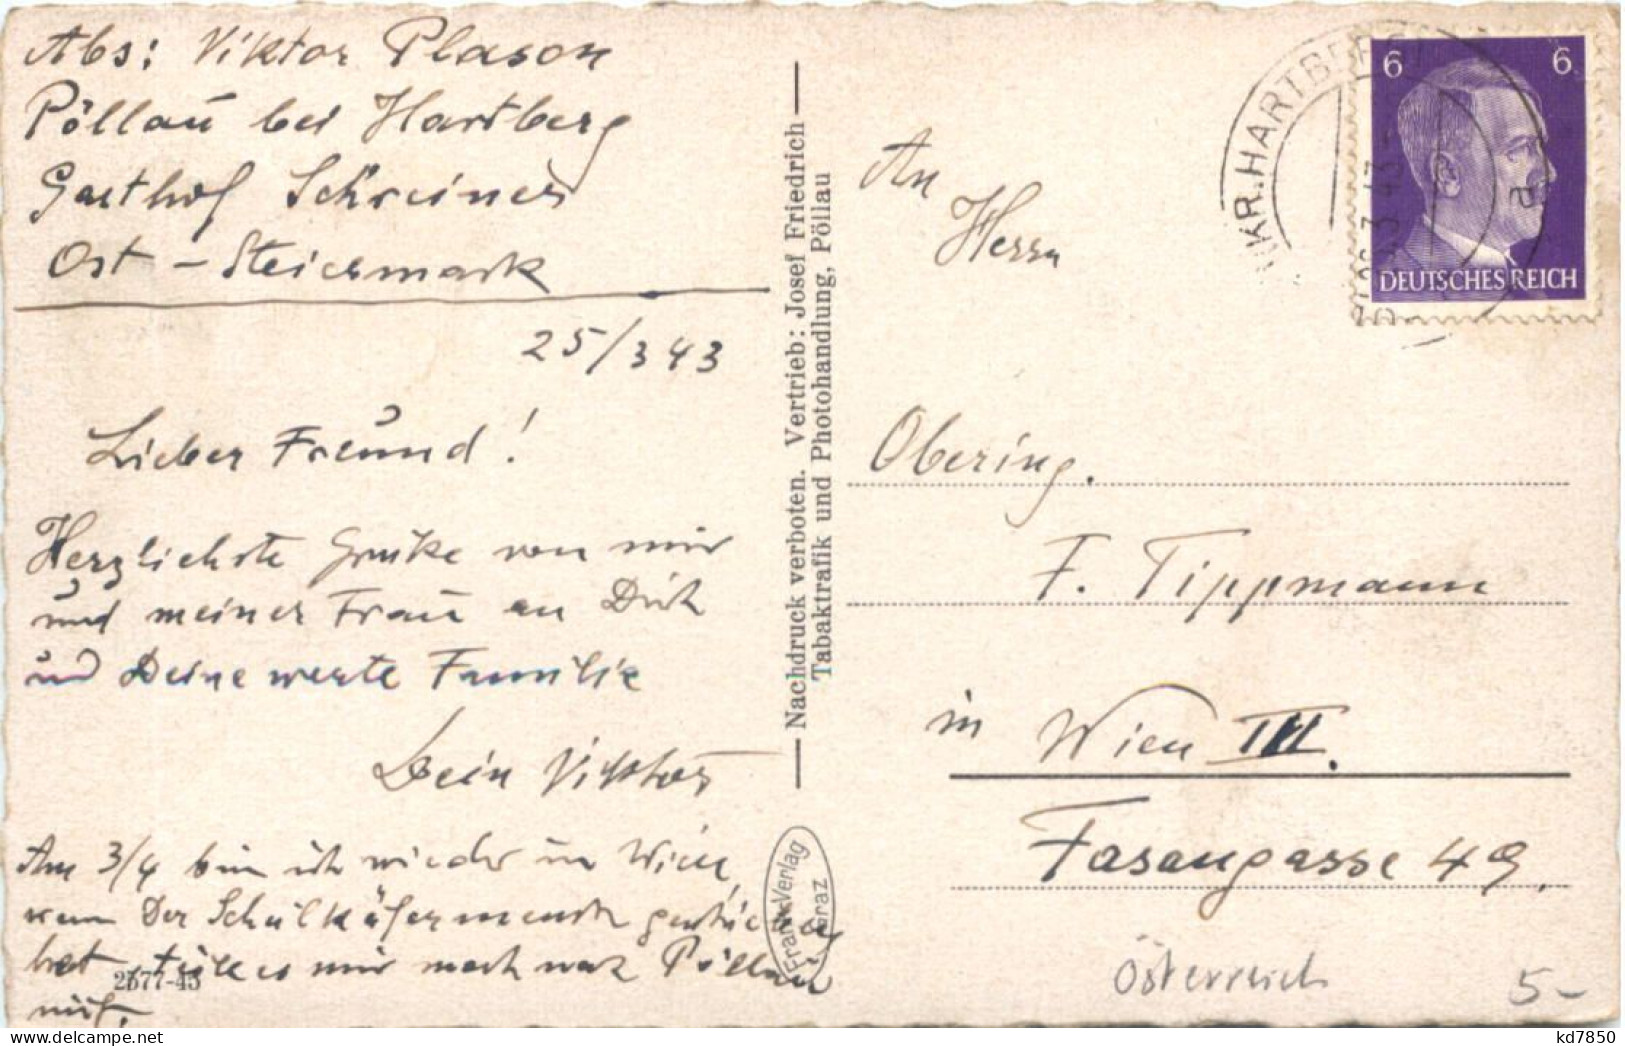 Abs: Viktor Plason
Pöllau bei Hartberg
Gasthof Schreiner
Ost-Steiermark
25/3 43
Lieber Freund!
Herzlichste Grüße von mir
und meiner Frau an Dich
und Deine werte Familie
Dein Viktor
Am 3/4 bin ich wieder in Wien,
wenn Der
hat, teile es mir noch nach Pöllau
mit.
2677-43
Nachdruck verboten. Vertrieb: Josef Friedrich
Tabaktrafik und Photohandlung, Pöllau
Frank-Verlag
Graz
KR. HARTBERG
a
6 6
DEUTSCHES REICH
An
Herrn
Obering.
F. Tippmann
in Wien III.
Fasangasse 49.
Österreich
5-
kd7850